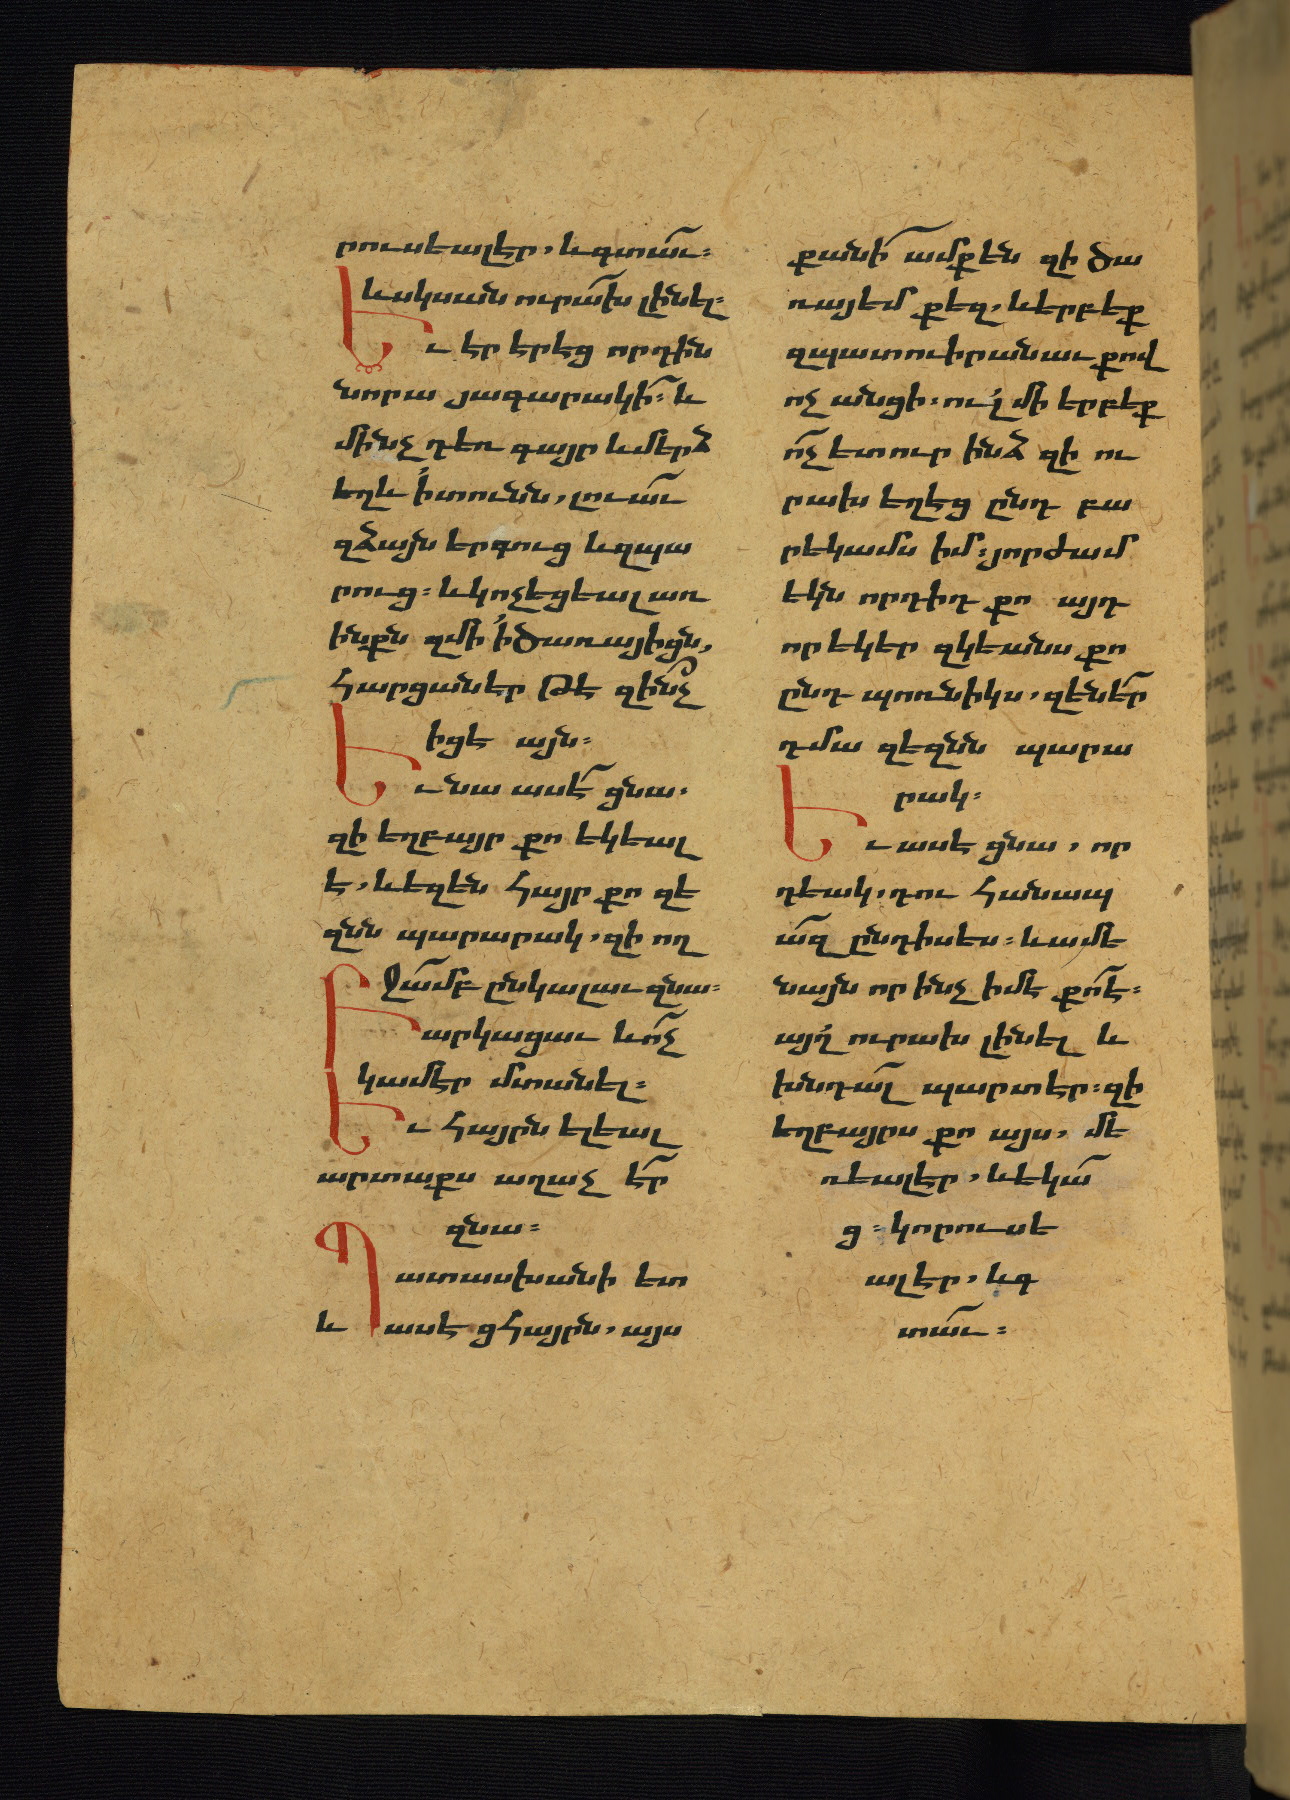 րուսեալէր, և գտաւ։
և սկսան ուրախ լինել։
Եւ էր երէց որդին
նորա յագարակի։ և
մինչ դեռ գայր և մերձ
եղև ՛ի տունն, լուաւ
զձայն երգուց և զպա
րուց։ և կոչեցեալ առ
ինքն զմի ՛ի ծառայիցն,
հարցանէր թէ զինչ
իցէ այն։
Եւ նա ասէ ցնա.
զի եղբայր քո եկեալ
է, և եզէն հայր քո զե
զնն պարարակ, զի ող
ջամբ ընկալաւ զնա։
Բարկացաւ և ոչ
կամէր մտանել։
Եւ հայրն ելեալ
արտաքս աղաչէր
զնա։
Պատասխանի ետ
և ասէ ցհայրն, այս
քանի ամք են զի ծա
ռայեմ քեզ, և երբեք
զպատուիրանաւ քով
ոչ անցի. ուլ մի երբեք
ոչ ետուր ինձ զի ու
րախ եղէց ընդ բա
րեկամս իմ։ յորժամ
եկն որդիդ քո այդ
որ եկեր զկեանս քո
ընդ պոռնիկս, զեներ
դմա զեզնն պարա
րակ։
Եւ ասէ ցնա, որ
դեակ, դու հանապ
ազ ընդ իս ես։ և ամե
նայն որ ինչ իմ է քո է։
այլ ուրախ լինել և
խնդալ պարտ էր։ զի
եղբայրս քո այս, մե
ռեալ էր, և եկա
ց։ կորուսե
ալ էր, և գ
տաւ։